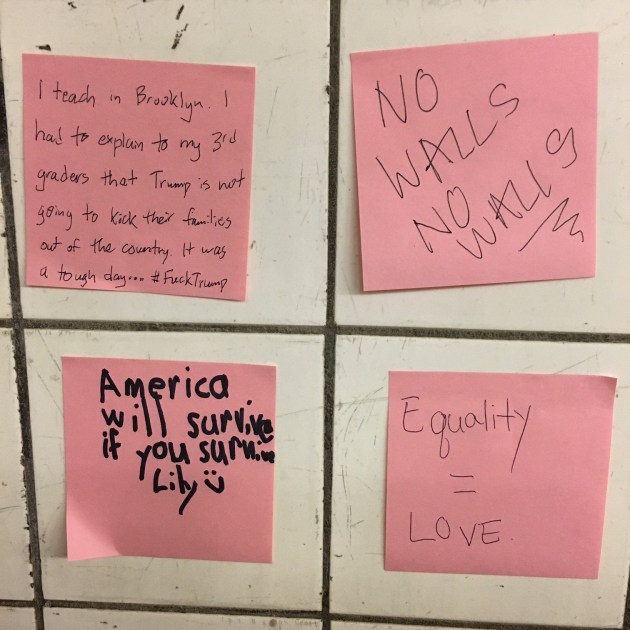 I teach in Brooklyn. I
had to explain to my 3rd
graders that Trump is not
going to kick their families
out of the country. It was
a tough day... #FuckTrump
NO
WALLS
NO
WALLS
America
will survive
if you survive
Lily
Equality
=
LOVE.